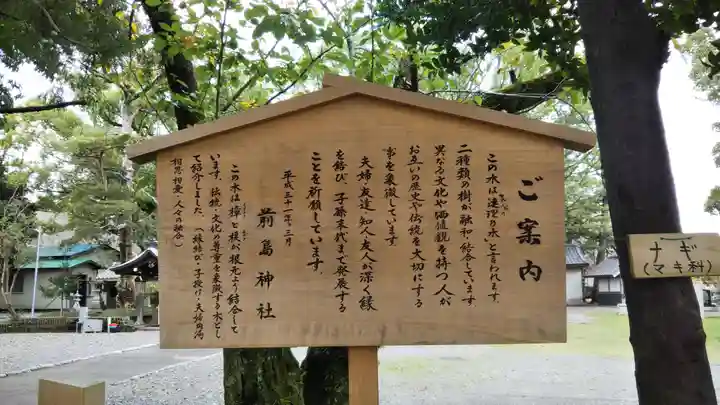 ご案内
この木は「連理の木」と言われます。
二種類の樹が融和・結合しています
異なる文化や価値観を持つ人が
お互いの歴史や伝統を大切にする
事を象徴しています。
夫婦、友達、知人・友人が深く縁
を結び、子孫末代まで発展する
ことを祈願しています。
平成三十一年三月
前島神社
この木は樟と槙が根元より結合して
います。伝統・文化の尊重を象徴する木とし
て紹介しました。(縁結び・子授け・夫婦円満
相思相愛・人々の融合)
ナギ
(マキ科)